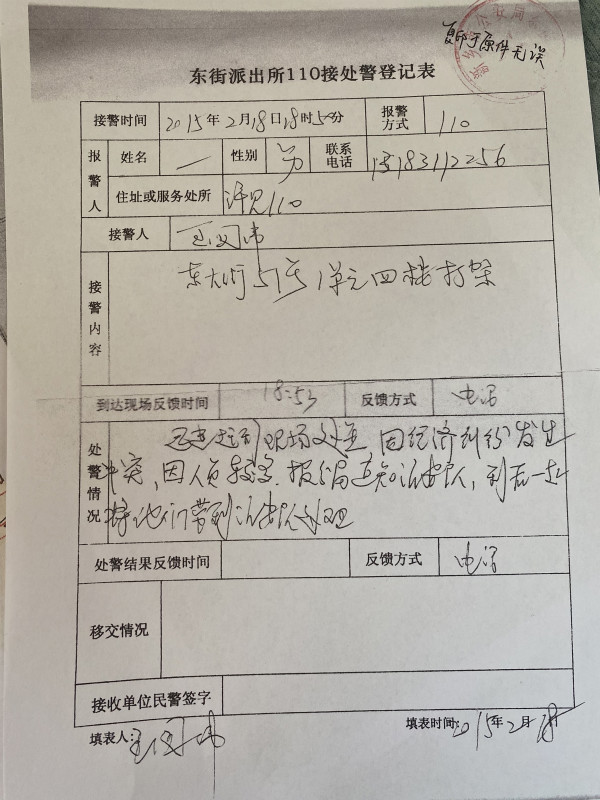 复印于原件无误
东街派出所110接处警登记表
接警时间 2015年2月18日18时50分 报警方式 110
报警人 姓名 一 性别 男 联系电话 15183112256
住址或服务处所 详见110
接警人
接警内容 东大街51号1单元四楼打架
到达现场反馈时间 18:53 反馈方式 电话
处警情况 现场处置 因经济纠纷发生
冲突,因人员较多.报分局通知治安队,到后一起
将他们带到治安队处理
处警结果反馈时间 反馈方式 电话
移交情况
接收单位民警签字
填表人: 填表时间:2015年2月18